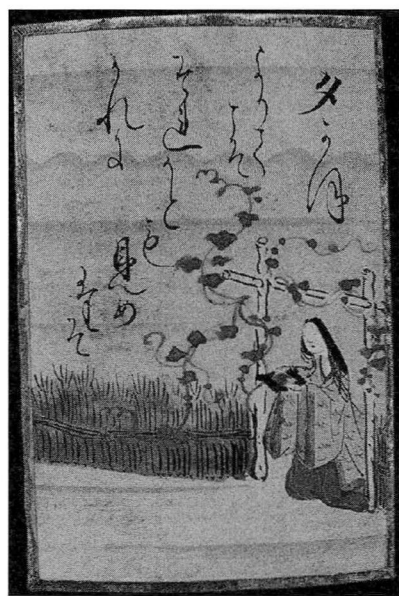 夕かほ
よりて
こそ
それかと
も
見め
たそ
かれに